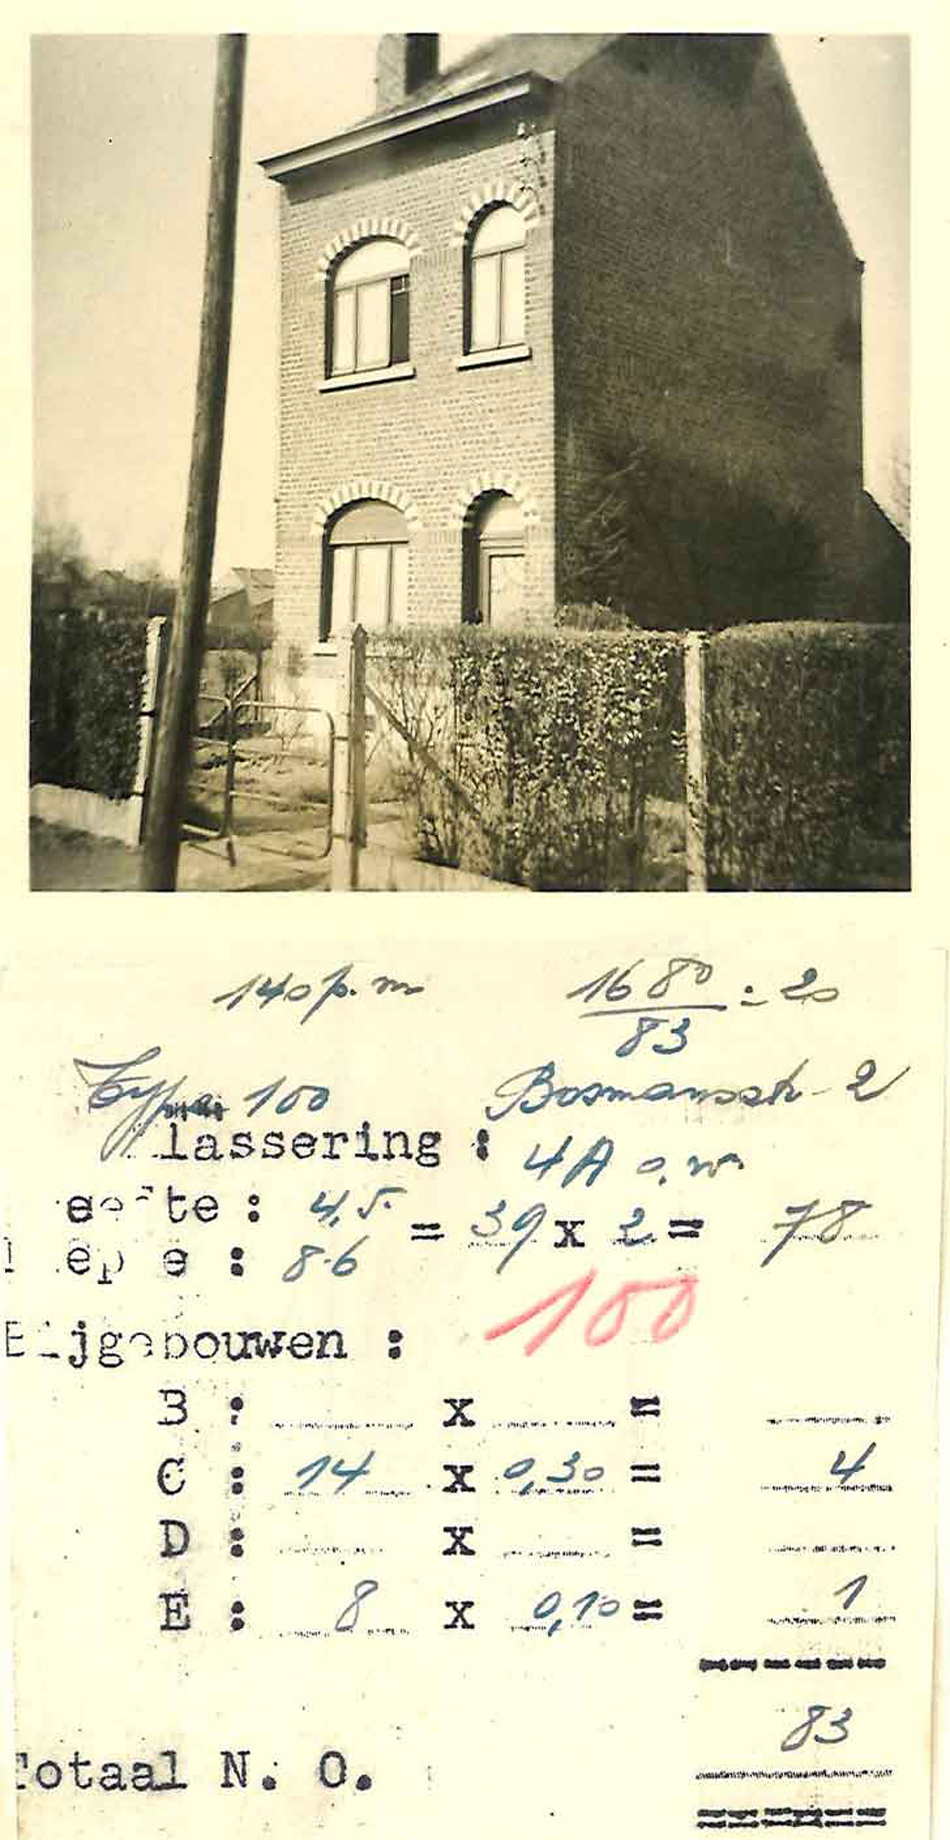 140 p. m 1680/83 = 20
Type 100 Bosmansstr 2
lassering : 4A o.w.
ee te : 4,5 = 39 x 2 = 78
ep e : 8.6
100
Bijgebouwen :
B : x =
C : 14 x 0,30 = 4
D : x =
E : 8 x 0,10 = 1
83
Totaal N. O.